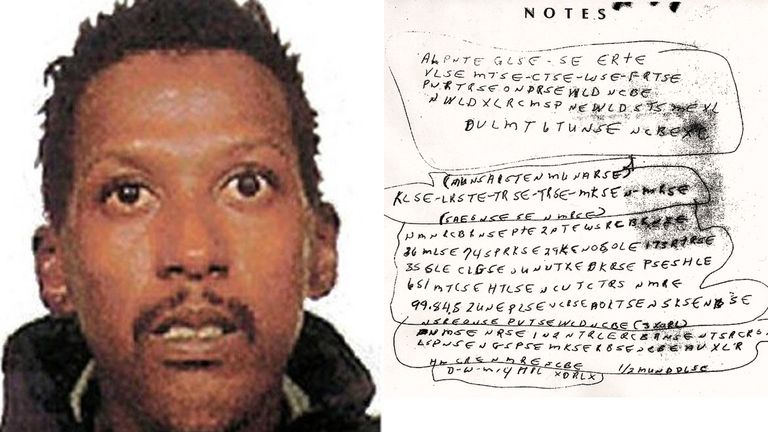 NOTES
ALPNTE GLSE-SE ERTE
VLSE MTSE-CTSE-WSE-FRTSE
PNRTRSE ONDRSE WLD NCBE
NWLDXLRCMSP NEWLD STS MEXL
DULMT6TUNSE NCBEXC
(MUNSAISTEN MUNARSE)
KLSE-LRSTE-TRSE-TRSE-MKSEN-MRSE
(SAE6NSE SE NMRSE)
NMNRCBRNSE PTE2PTEWSRCBRNSE
36 MLSE 74 SPRKSE 29KENOSOLE 173RTRSE
35 GLE CLGSE UNUTXE DKRSE PSESHLE
651 MTCSE HTLSE NCUTCTRS NMRE
99.84.52 UNEPLSE NCRSE AOLTSE NSKSE NBSE
NSREONSE PUTSE WLD NCBE (3XORL)
NMSE NRSE IN2NTRLERCBRNSE NTSRCRSNE
LSPNSE NGSPSE MKSERBSE NCBE AUXLR
HM CRE NMRE NCBE 1/2 MUNDDLSE
D-W-M-4 MIL XDRLX